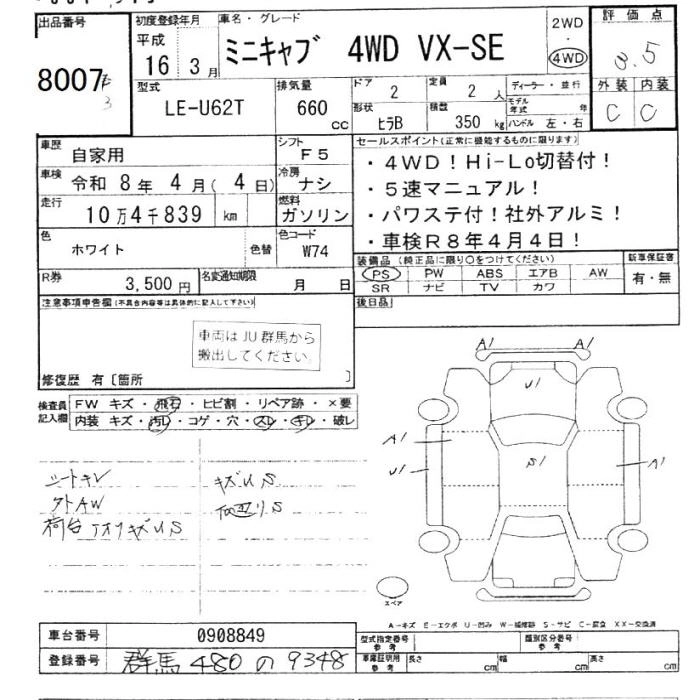 出品番号
8007
3
初度登録年月
平成
16 3月
車名・グレード
ミニキャブ 4WD VX-SE
2WD
・
4WD
評価点
3.5
外装 内装
C C
型式
LE-U62T
排気量
660 CC
ドア
2
定員
2人
ディーラー・並行
形状
ヒラB
積数
350 kg
モデル年式 年
ハンドル 左・右
車歴
自家用
シフト
F5
車検
令和 8年 4月(4日)
冷房
ナシ
走行
10万4千839 km
燃料
ガソリン
色
ホワイト
色替
色コード
W74
R券
3,500円
名変通知期限
月 日
セールスポイント(正常に機能するものに限ります)
・4WD!Hi-Lo切替付!
・5速マニュアル!
・パワステ付!社外アルミ!
・車検R8年4月4日!
装備品(純正品に限り○をつけてください)
新車保証書
PS PW ABS エアB AW
SR ナビ TV カワ
有・無
後日品
注意事項申告欄(不具合内容等は具体的に記入して下さい)
車両はJU群馬から
搬出してください。
修復歴 有〔箇所 〕
検査員記入欄
FW キズ・飛石・ヒビ割・リペア跡・×要
内装 キズ・汚レ・コゲ・穴・スレ・キレ・破レ
シートキレ
キズUS
AW
荷台 キズUS
S
A1 A1
U1
A1
U1
S1
A1
スペア
A-キズ E-エクボ U-凹み W-補修跡 S-サビ C-腐食 XX-交換済
車台番号
0908849
登録番号
群馬 480 の 9348
型式指定番号
参考
類別区分番号
参考
車庫証明用
参考
長さ cm 幅 cm 高さ cm